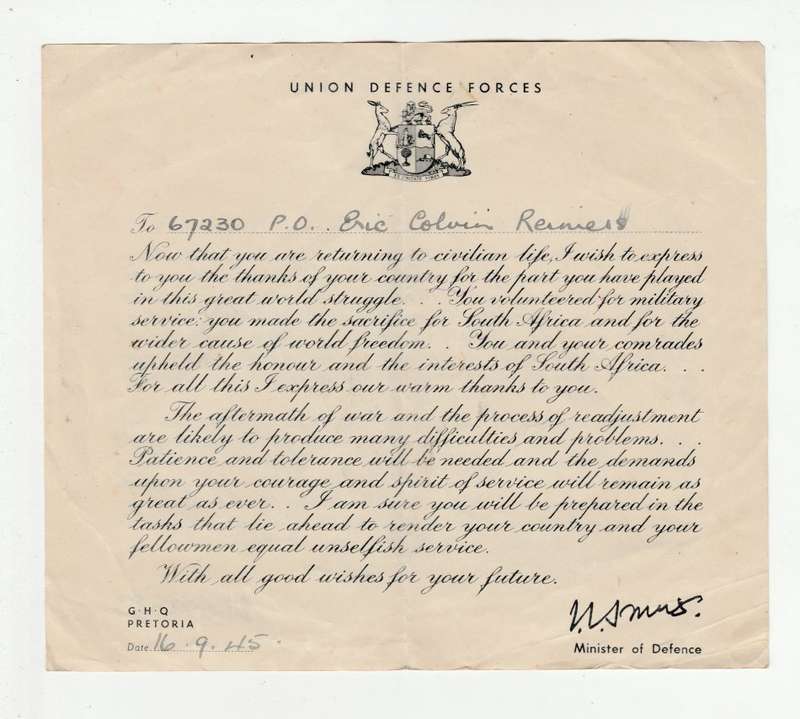 UNION DEFENCE FORCES
To 67230 P.O. Eric Colvin
Now that you are returning to civilian life, I wish to express
to you the thanks of your country for the part you have played
in this great world struggle. . . You volunteered for military
service: you made the sacrifice for South Africa and for the
wider cause of world freedom. . You and your comrades
upheld the honour and the interests of South Africa. . . .
For all this I express our warm thanks to you.
The aftermath of war and the process of readjustment
are likely to produce many difficulties and problems. . . .
Patience and tolerance will be needed and the demands
upon your courage and spirit of service will remain as
great as ever. . I am sure you will be prepared in the
tasks that lie ahead to render your country and your
fellowmen equal unselfish service.
With all good wishes for your future.
G·H·Q
PRETORIA
Date 16.9.45.
J.C. Smuts.
Minister of Defence